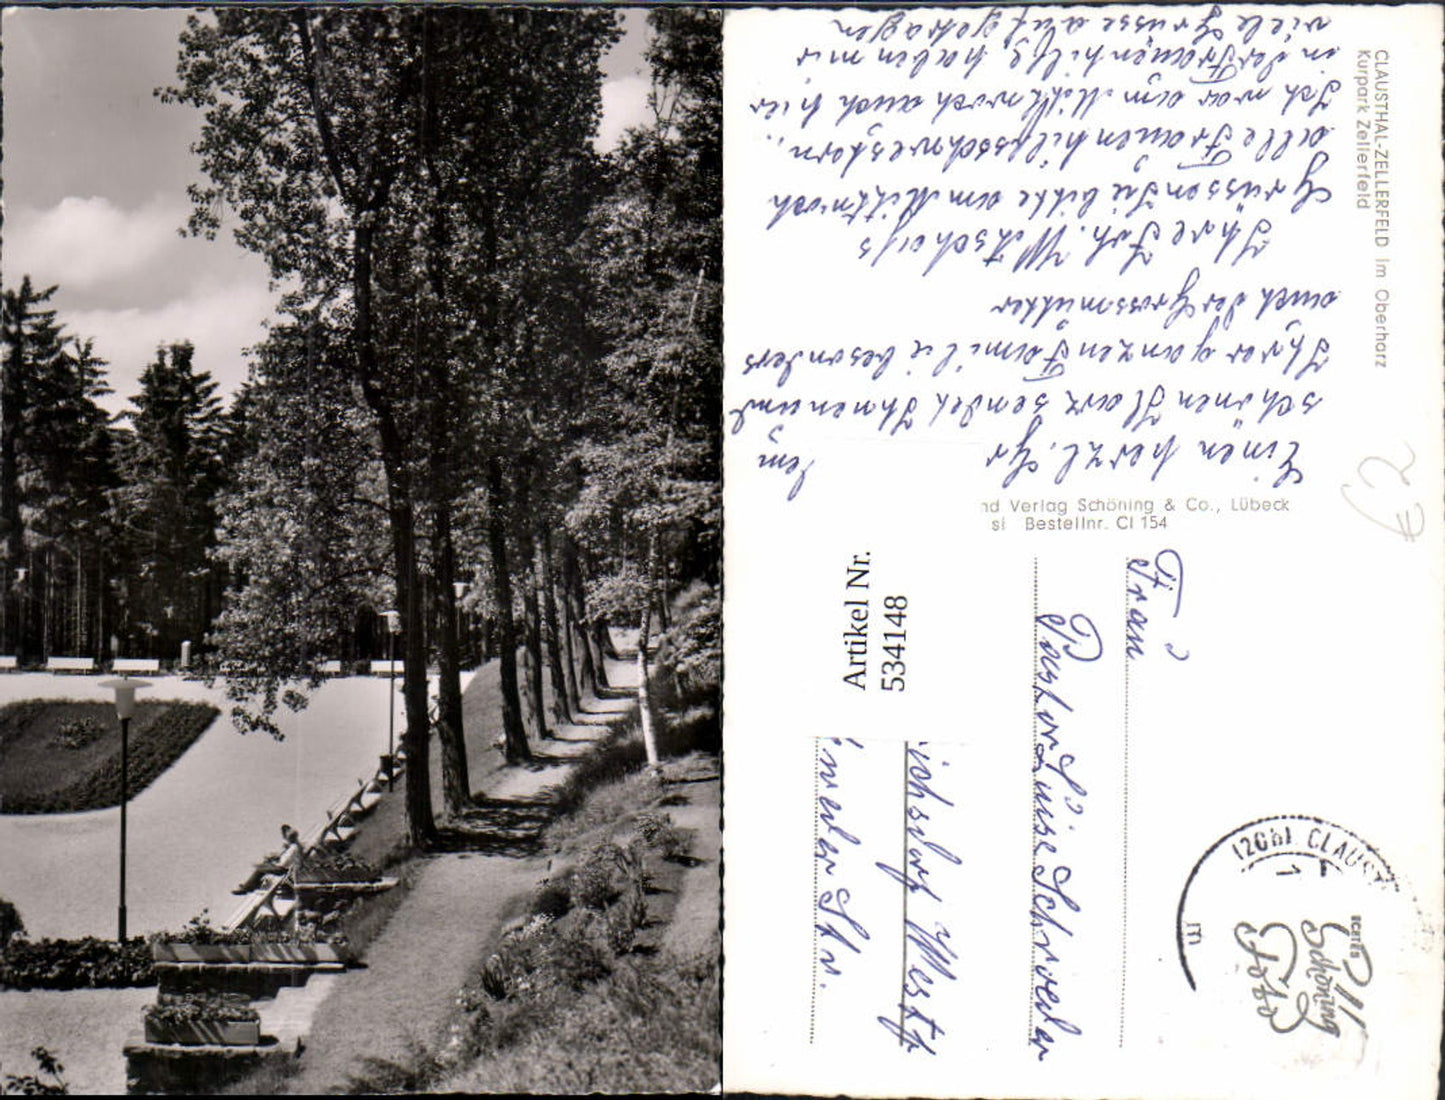 CLAUSTHAL-ZELLERFELD im Oberharz
Kurpark Zellerfeld
Einen herzl. Gr
dem
schönen Harz sendet Ihnen und
Ihrer ganzen Familie besonders
auch der Grossmutter
Ihre Frh.
Grüssen Sie bitte am Mittwoch
alle Frauenhilfsschwestern,
Ich war am Mittwoch auch hier
in der Frauenhilfe, haben mir
viele Grüsse aufgetragen
nd Verlag Schöning & Co., Lübeck
si Bestellnr. Cl 154
Artikel Nr.
534148
Frau
Pastor Luise Schrweder
ichsdorf Westf
Str.
(20b) CLAUST
1
E
ECHTES
Schöning
Foto